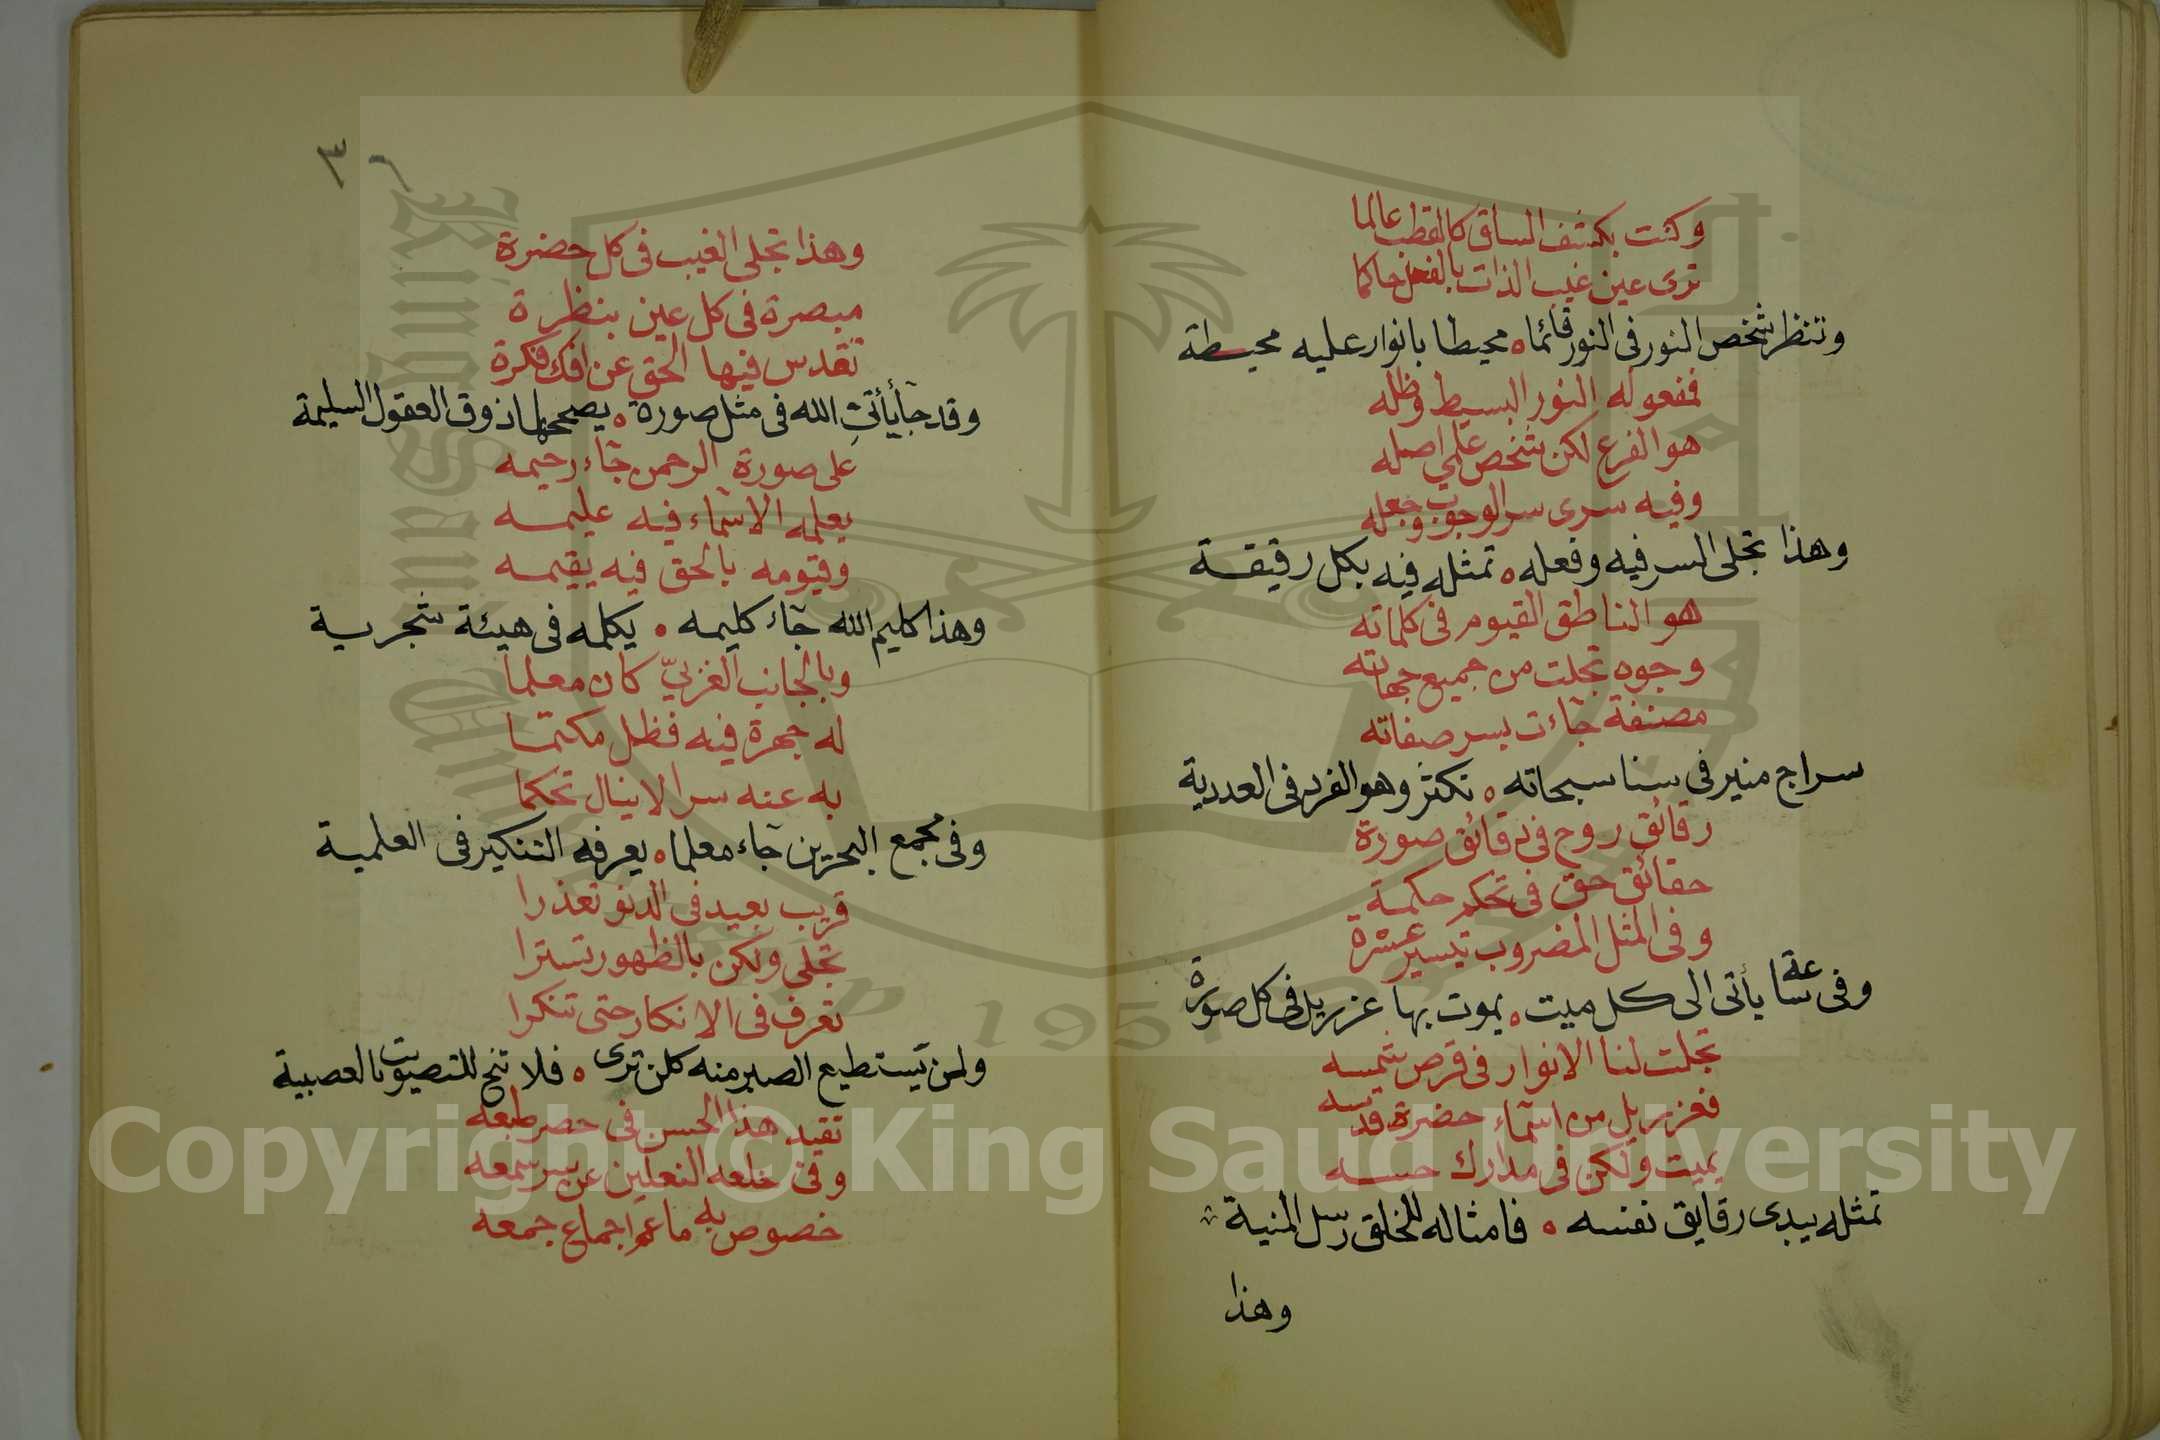 وكنت بكشف الساق كالقطب عالما
ترى عين غيب الذات بالفعل حاكما
وتنظر شخص النور فى النور قائما ٥ محيطا بانوار عليه محيطة
ففعوله النور البسيط وظله
هو الفرع لكن شخص علمي اصله
وفيه سرى سر الوجوب وجعله
وهذا تجلى السر فيه وفعله ٥ تمثله فيه بكل رقيقة
هو الناطق القيوم فى كلماته
وجوه تجلت من جميع جهاته
مصنفة جآءت بسر صفاته
سراج منير فى سنا سبحاته ٥ تكثر وهو الفرد فى العددية
رقائق روح فى دقائق صورة
حقائق حق فى تحكم حكمة
وفى المثل المضروب تيسير عسرة
وفى ساعة يأتى الى كل ميت ٥ يموت بها عزريل فى كل صورة
تجلت لنا الانوار فى قرص شمسه
فعزريل من اسمآء حضرة قدسه
يميت ولكن فى مدارك حسه
تمثله يبدى رقايق نفسه ٥ فامثاله للخلق رسل المنية
وهذا
٣
وهذا تجلى الغيب فى كل حضرة
مبصرة فى كل عين بنظرة
تقدس فيها الحق عن افك فكرة
وقد جآ يأتى الله فى مثل صورة ٥ يصححها ذوق العقول السليمة
على صورة الرحمن جآء رحيمه
يعلمه الاسمآء فيه عليمه
وقيومه بالحق فيه يقيمه
وهذا كليم الله جآء كليمه ٥ يكلمه فى هيئة شجرية
وبالجانب الغربيّ كان معلما
له جهرة فيه فظل مكتما
به عنه سرا لاينال تحكما
وفى مجمع البحرين جآء معلما ٥ يعرفه التنكير فى العلمية
قريب بعيد فى الدنو تعذرا
تجلى ولكن بالظهور تسترا
تعرف فى الانكار حتى تنكرا
ولن يستطيع الصبر منه كلن ترى ٥ فلا تنح للتصويت بالعصبية
تقيد هذا الحسن فى حصر طبعه
وفى خلعه النعلين عن سر سمعه
خصوص به ما عم اجماع جمعه
King Saud
1957
Copyright © King Saud University